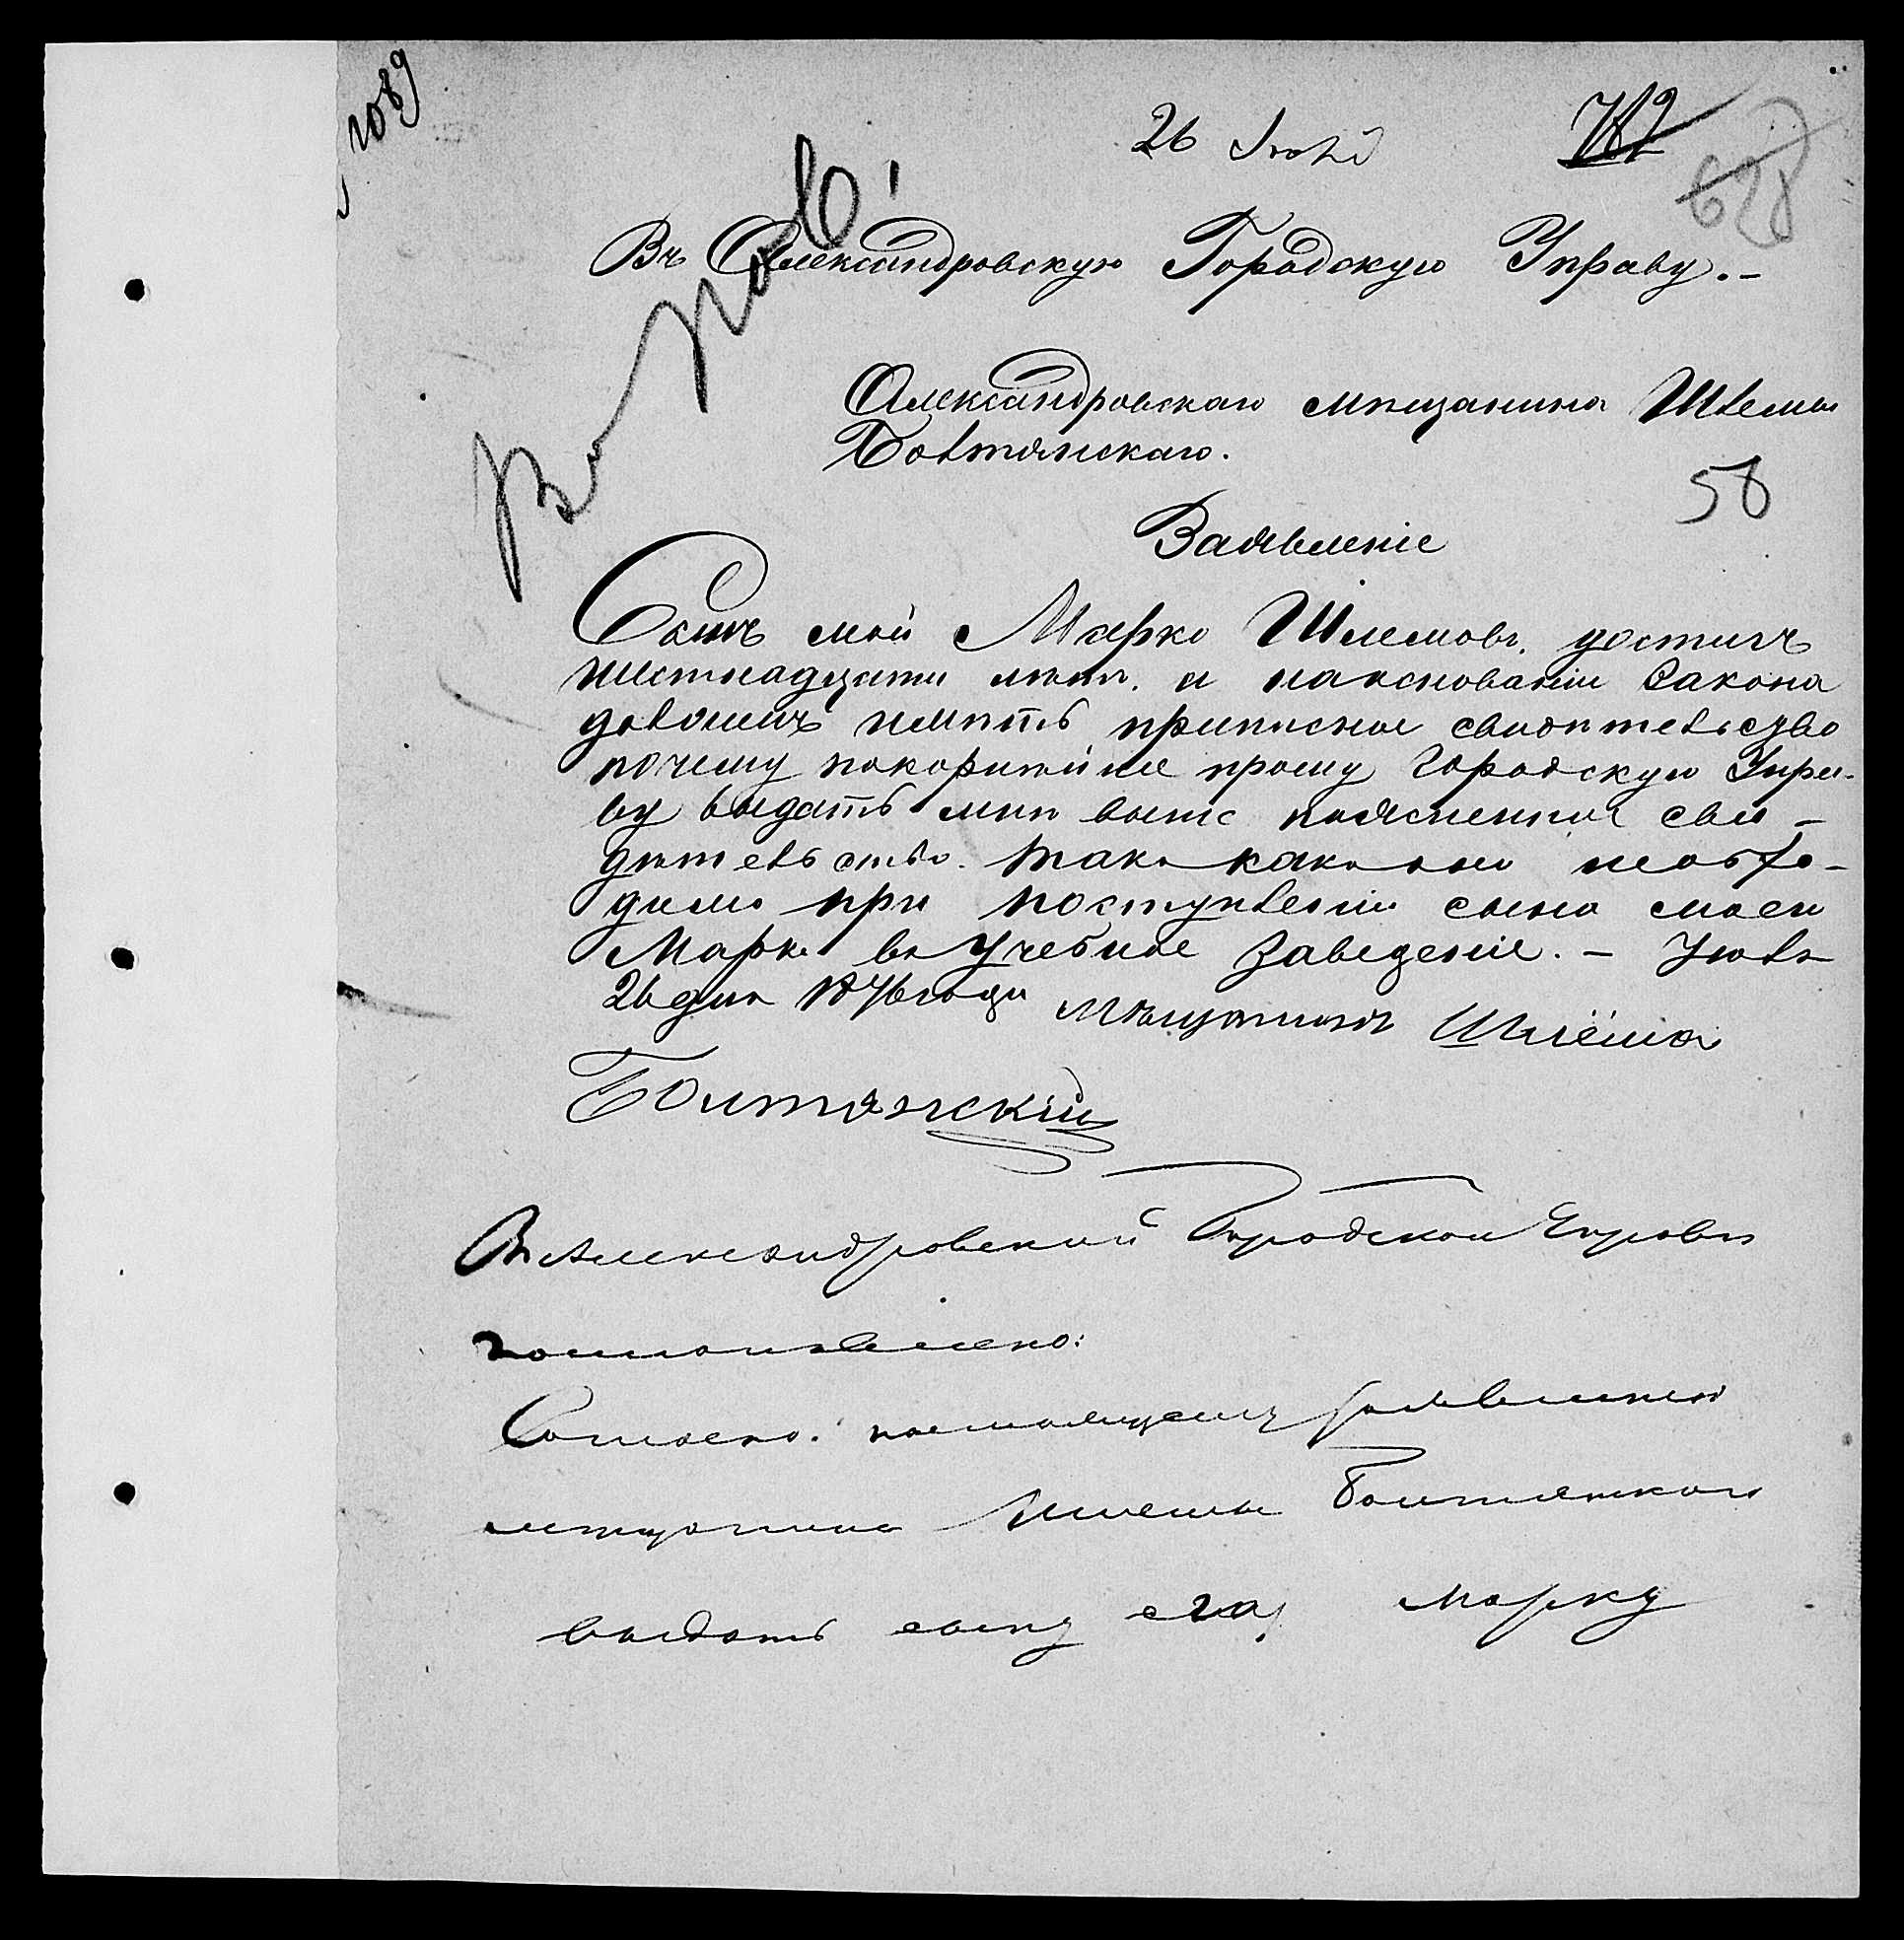 1089
26 Іюня
782
628
Въ Александровскую Городскую Управу.-
Александровскаго мѣщанина Шлемы
Болтянскаго.
58
Заявленіе
Сынъ мой Марко Шлемовъ. достигъ
шестнадцати лѣтъ. и наоснованіи Закона
долженъ имѣть приписное свидѣтельство
почему покорнѣйше прошу Городскую Упра-
ву выдать мнѣ выше поясненное сви-
дѣтельство. такъ какъ оно необхо-
димо при поступленіи сына моего
Марка въ Учебное Заведеніе. - Іюль
26 дня 1876 года Мѣщанинъ Шлёма
Болтянскій
Въ Александровской Городской Управѣ
постановлено:
Согласно настоящему заявленію
мѣщанина Шлемы Болтянского
выдать сыну его Марку